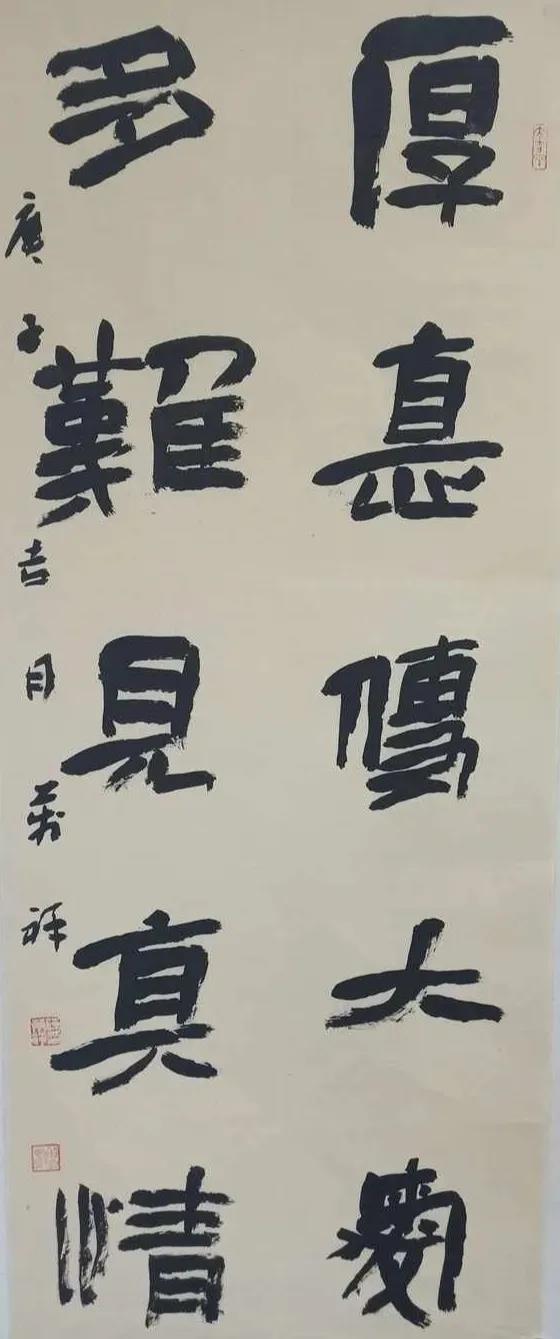 厚悳傳大愛
多難見真情
庚子吉月萬祥